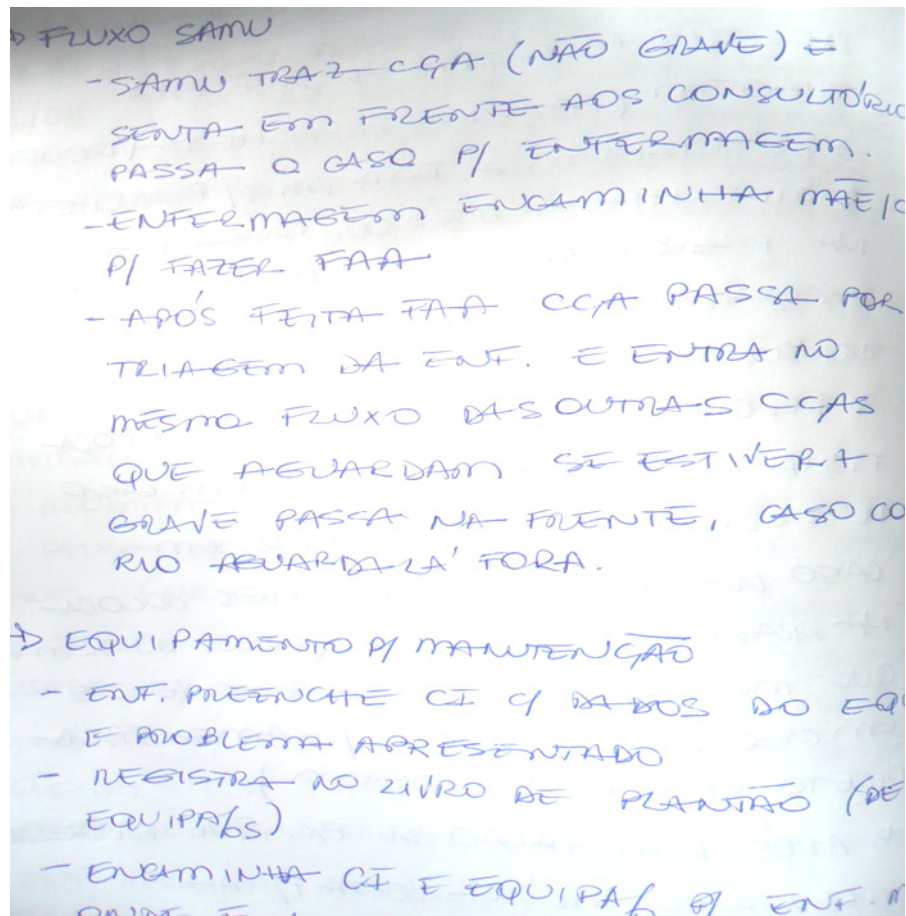 → FLUXO SAMU
- SAMU TRAZ CÇA (NÃO GRAVE) E
SENTA EM FRENTE AOS CONSULTÓRIO
PASSA O CASO P/ ENFERMAGEM.
- ENFERMAGEM ENCAMINHA MÃE/C
P/ FAZER FAA
- APÓS FEITA FAA CÇA PASSA POR
TRIAGEM DA ENF. E ENTRA NO
MESMO FLUXO DAS OUTRAS CÇAS
QUE AGUARDAM SE ESTIVER +
GRAVE PASSA NA FRENTE, CASO CO
RIO AGUARDA LÁ FORA.
→ EQUIPAMENTO P/ MANUTENÇÃO
- ENF. PREENCHE CI C/ DADOS DO EQU
E PROBLEMA APRESENTADO
- REGISTRA NO LIVRO DE PLANTÃO (DE
- ENCAMINHA CI E P/ ENF. M